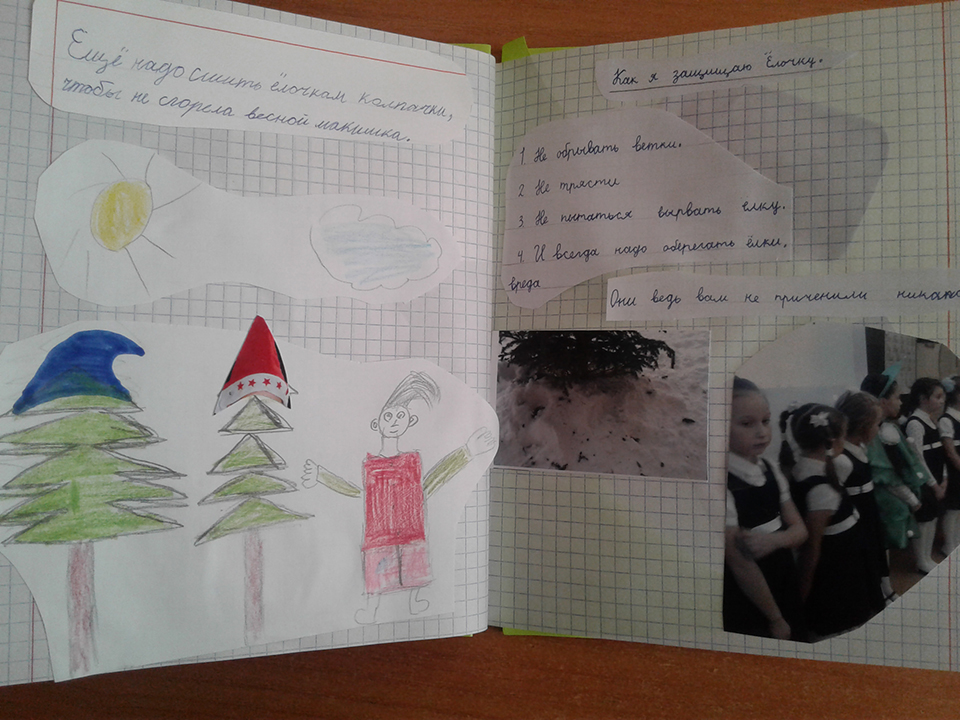 Ещё надо сшить ёлочкам колпачки,
чтобы не сгорела весной макишка.
Как я защищаю Ёлочку.
1. Не обрывать ветки.
2. Не трясти
3. Не пытаться вырвать елку.
4. И всегда надо оберегать ёлки,
вреда
Они ведь вам не приченили никако